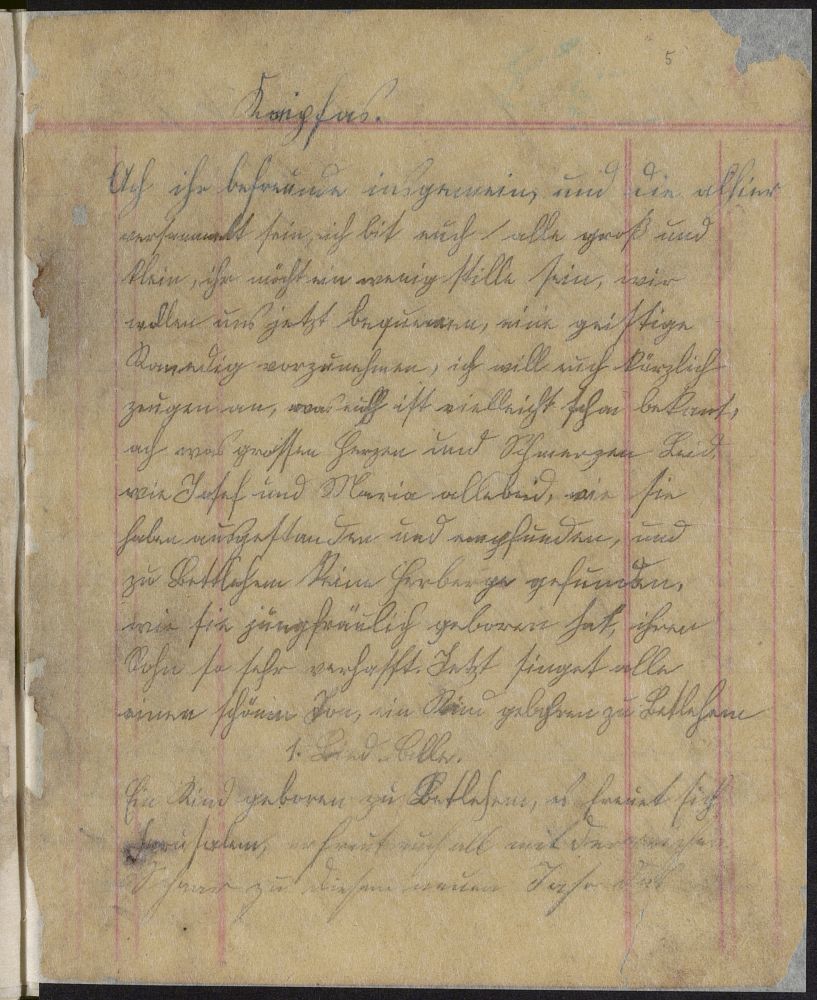 5
Kaiphas.
Ach ihr befreunde insgemein, und die alhier
versammelt sein, ich bit euch / alle groß und
klein, ihr möcht ein wenig stille sein, wir
wollen uns jetzt bequemen, eine geistige
Komedig vorzunehmen, ich will euch kürzlich
zeugen an, was euch ist vielleicht schon bekant,
ach was grossen Herzen und Schmerzen Leid.
wie Josef und Maria allebeid, wie sie
haben ausgestanden und empfunden, und
zu Bethlehem keine Herberge gefunden.
wie sie jungfräulich geboren hat, ihren
Sohn so sehr verhafft. Jetzt singet alle
einen schönen Ton, ein Kind gebohren zu Betlehem
1. Lied. Alle.
Ein Kind geboren zu Betlehem, es freuet sich
Jerusalem, erfreut euch all mit der
Schaar zu diesem neuen Jahr